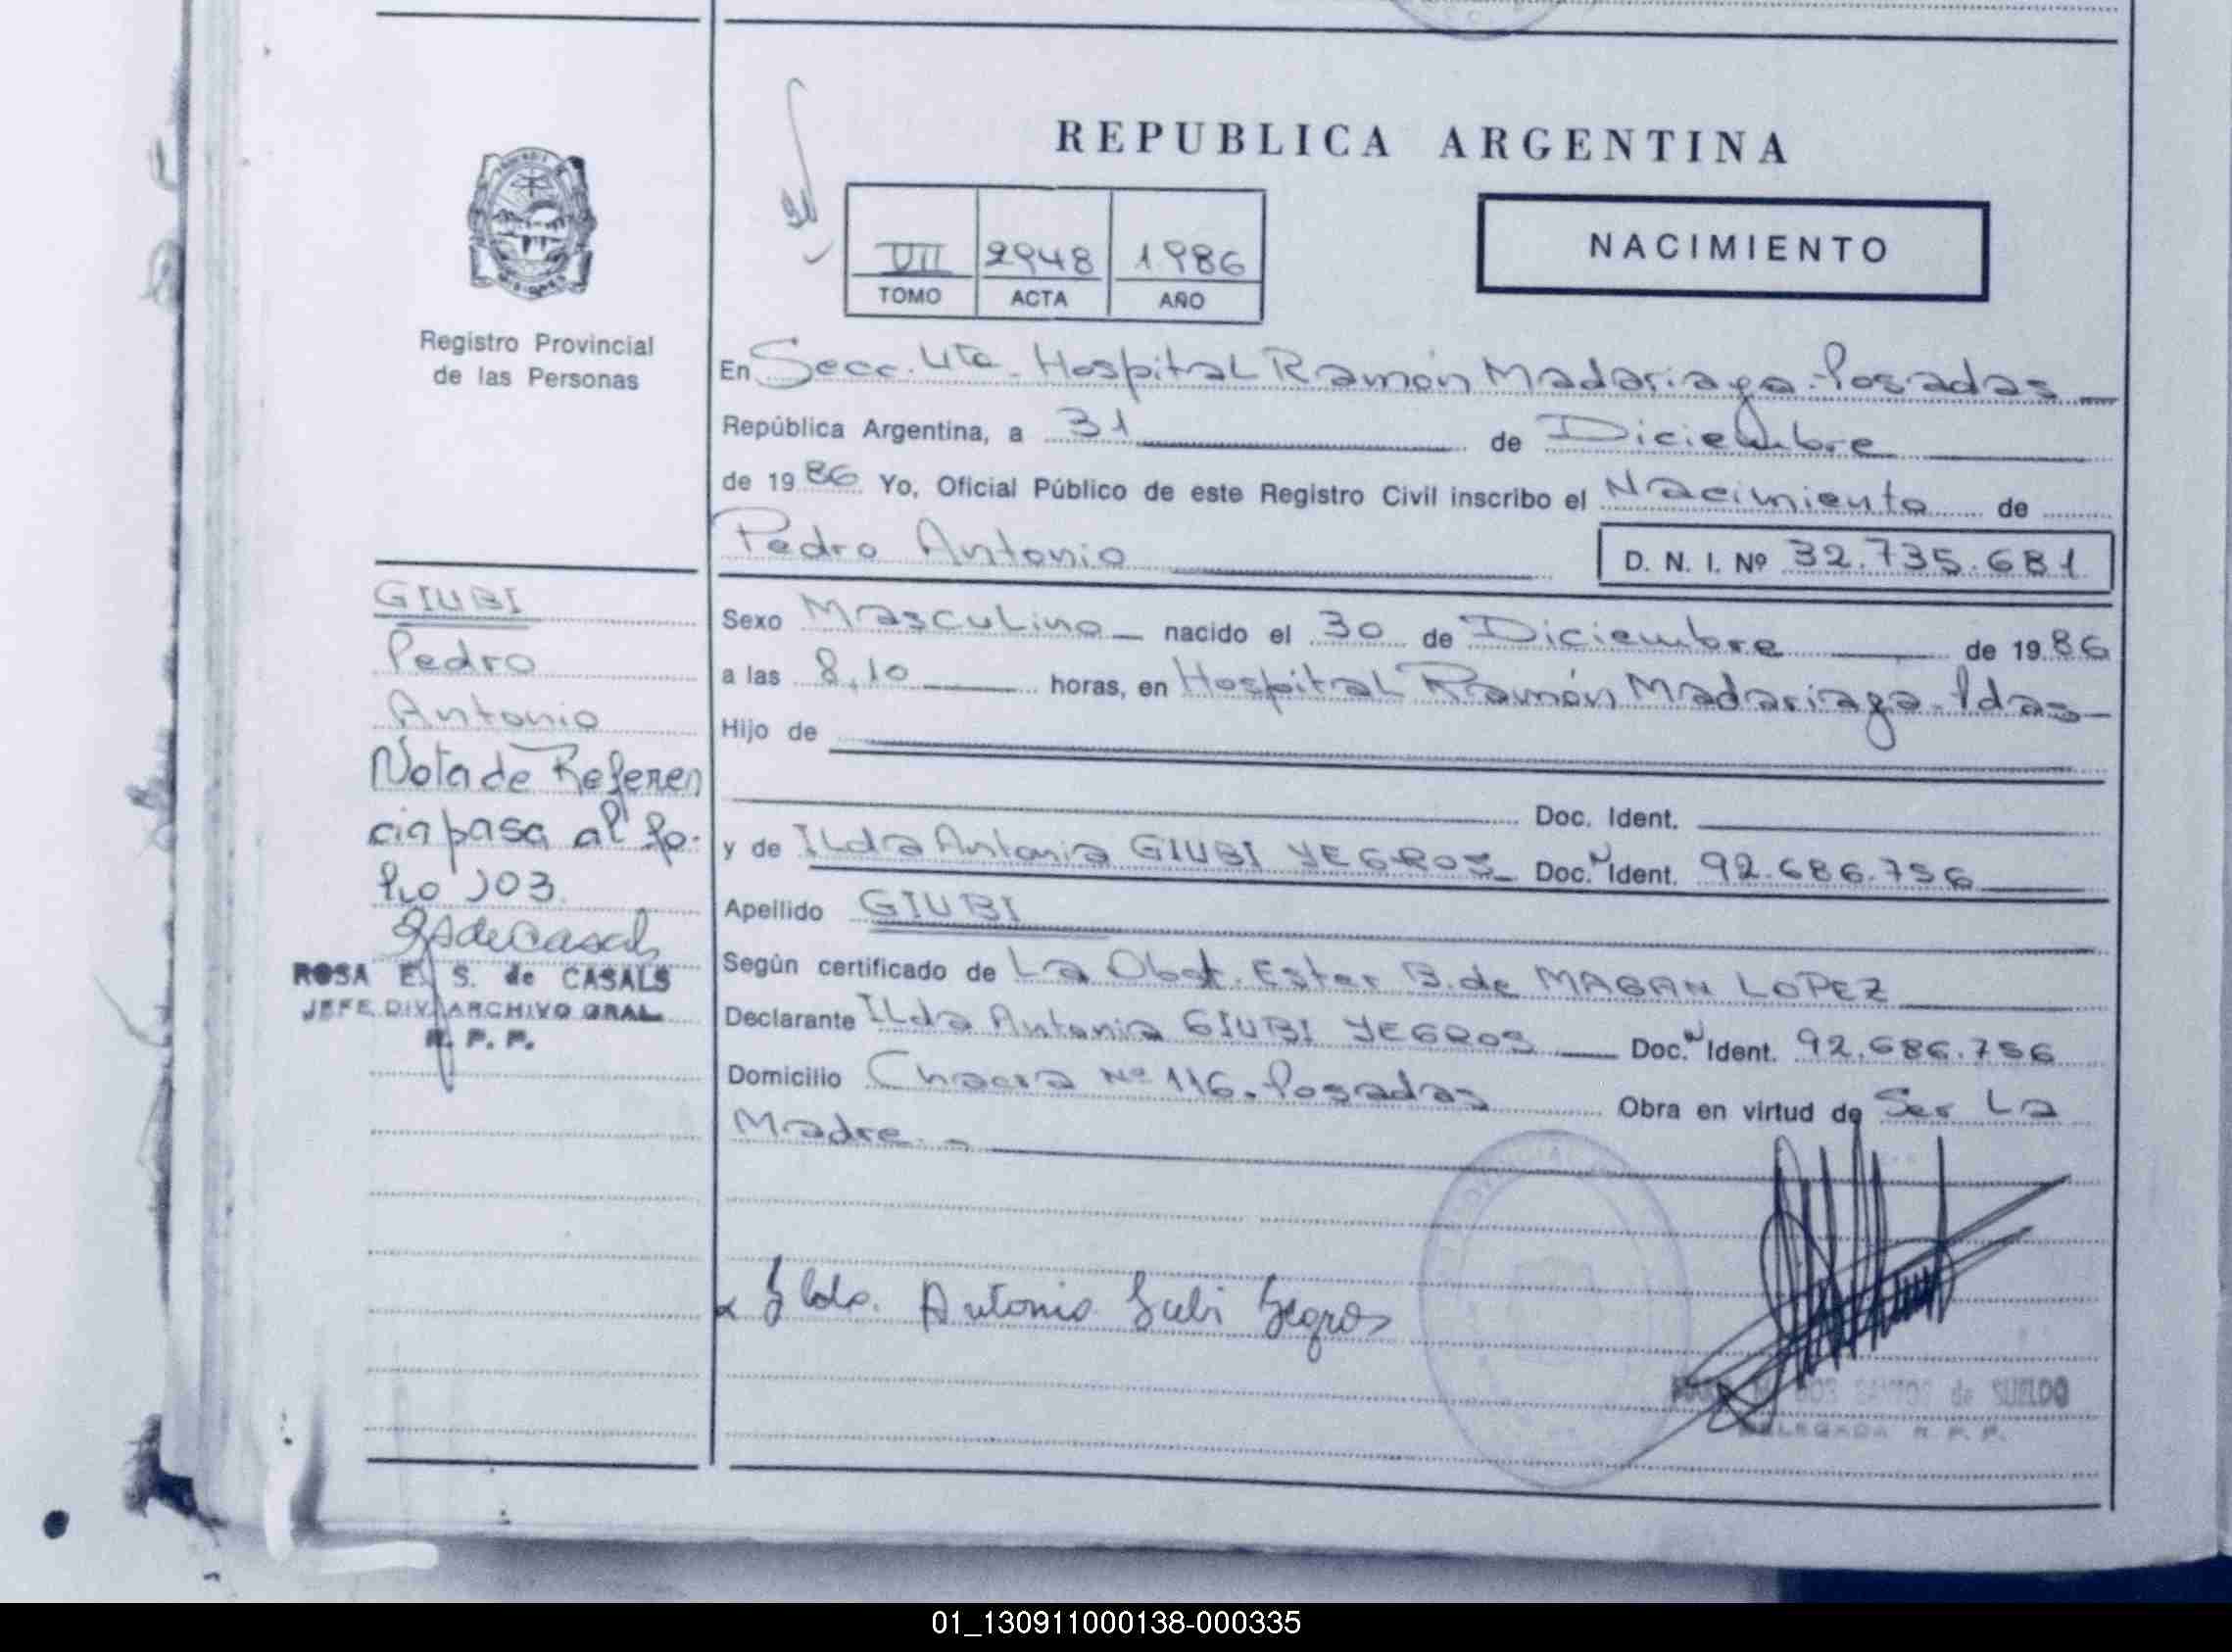 REPUBLICA ARGENTINA
NACIMIENTO
VII 2948 1986
TOMO ACTA AÑO
Registro Provincial
de las Personas
En Secc. 4ta. Hospital Ramón Madariaga - Posadas
República Argentina, a 31 de Diciembre
de 1986 Yo, Oficial Público de este Registro Civil inscribo el Nacimiento de
Pedro Antonio D. N. I. Nº 32.735.681
Sexo Masculino nacido el 30 de Diciembre de 1986
a las 8,10 horas, en Hospital Ramón Madariaga - Pdas
Hijo de
Doc. Ident.
y de ILda Antonia GIUBI YEGROS Doc. N Ident. 92.686.756
Apellido GIUBI
Según certificado de La Obst. Ester B. de MAGAN LOPEZ
Declarante ILda Antonia GIUBI YEGROS Doc. N Ident. 92.686.756
Domicilio Chacra Nº 116. Posadas Obra en virtud de Ser La
Madre.-
Ilda. Antonia Giubi Yegros
SANTOS de SUELDO
DELEGADA R. P. P.
GIUBI
Pedro
Antonio
Nota de Referen
cia pasa al fo-
lio 103.
ROSA E. S. de CASALS
JEFE DIV. ARCHIVO GRAL
R. P. P.
01_130911000138-000335